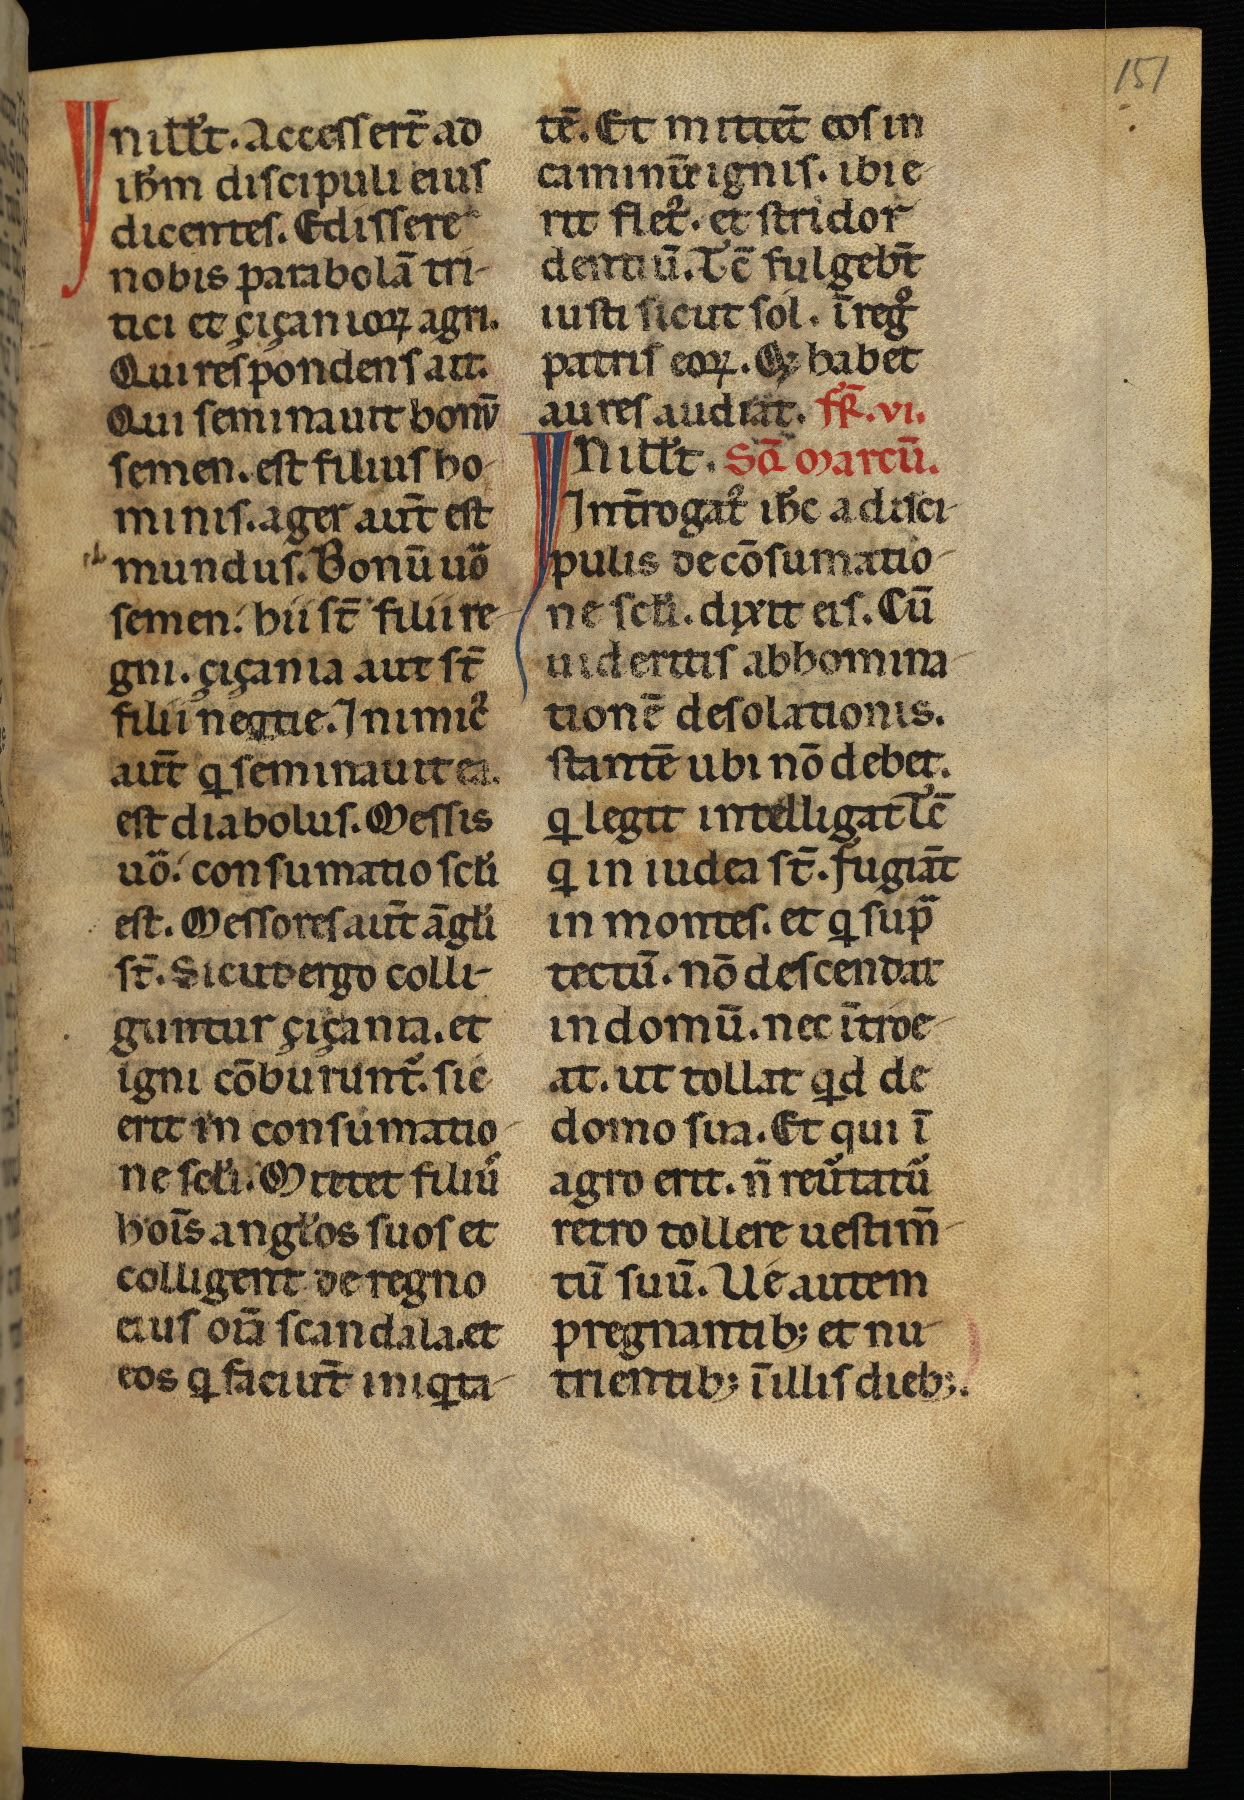 151
In illt̄. Accessert̄ ad
ih̄m discipuli eius
dicentes. Edissere
nobis parabolā tri-
tici et çiçanioꝝ agri.
Qui respondens ait.
Qui seminauit bonū
semen. est filius ho-
minis. ager aut̄ est
mundus. Bonū uoᷓ
semen. hii st̄ filii re-
gni. çiçania aut st̄
filii neqtie. Inimic᷒
aut̄ ꝗ seminauit ea.
est diabolus. Messis
uoᷓ. consumatio scłi
est. Messores aut̄ āgłi
st̄. Sicut ergo colli-
guntur çiçania. et
igni cōburunt᷒. sic
erit in consumatio-
ne scłi. Mitet filiu᷒
hoīs angłos suos et
colligent de regno
eius oīa scandala. et
eos ꝗ faciūt iniꝗta-
tē. Et mittēt eos in
caminū ignis. ibi e-
rit flet᷒. et stridor
dentiū. Tc̄ fulgebt̄
iusti sicut sol. ī reg᷒
patris eoꝝ. Qꝫ habet
aures audiat. fꝶ. vi.
In illt̄. Scd̄ marcū.
Int̄rogat᷒ ih̄c a disci-
pulis de cōsumatio-
ne scłi. dixit eis. Cū
uideritis abhomina-
tionē desolationis.
stantē ubi nō debet.
ꝗ legit intelligat Tc̄
ꝗ in iudea st̄. fugiāt
in montes. et ꝗ supᷓ
tectū. nō descendat
in domū. nec ītroe-
at. ut tollat ꝗd de
domo sua. Et qui ī
agro erit. n̄ reūtatu᷒
retro tollere uestim̄-
tū suū. Ue autem
pregnantibꝫ et nu-
trientibꝫ ī illis diebꝫ.